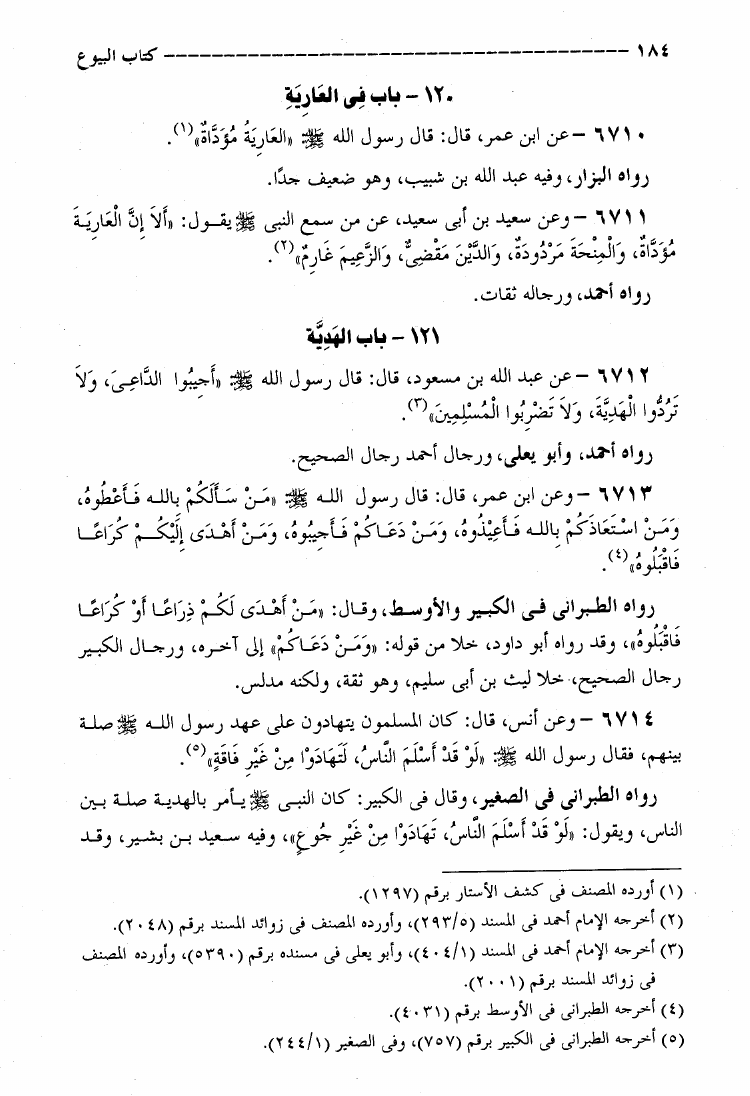 ١٨٤ ------------------------------------- كتاب البيوع
١٢٠ - باب فِى العَارِيَةِ
٦٧١٠ - عن ابن عمر، قال: قال رسول الله ﷺ: «العَارِيَةُ مُؤَدَّاةٌ»(١).
رواه البزار، وفيه عبد الله بن شبيب، وهو ضعيف جدًا.
٦٧١١ - وعن سعيد بن أبى سعيد، عن من سمع النبى ﷺ يقول: «أَلاَ إِنَّ الْعَارِيَةَ
مُؤَدَّاةٌ، وَالْمِنْحَةَ مَرْدُودَةٌ، وَالدَّيْنَ مَقْضِىٌّ، وَالزَّعِيمَ غَارِمٌ»(٢).
رواه أحمد، ورجاله ثقات.
١٢١ - باب الهَدِيَّة
٦٧١٢ - عن عبد الله بن مسعود، قال: قال رسول الله ﷺ: «أَجِيبُوا الدَّاعِىَ، وَلاَ
تَرُدُّوا الْهَدِيَّةَ، وَلاَ تَضْرِبُوا الْمُسْلِمِينَ»(٣).
رواه أحمد، وأبو يعلى، ورجال أحمد رجال الصحيح.
٦٧١٣ - وعن ابن عمر، قال: قال رسول الله ﷺ: «مَنْ سَأَلَكُمْ بالله فَأَعْطُوهُ،
وَمَنْ اسْتَعَاذَكُمْ بِالله فَأَعِيْذُوهُ، وَمَنْ دَعَاكُمْ فَأَجِيبُوهُ، وَمَنْ أَهْدَى إِلَيْكُمْ كُرَاعًا
فَاقْبَلُوهُ»(٤).
رواه الطبرانى فى الكبير والأوسط، وقال: «مَنْ أَهْدَى لَكُمْ ذِرَاعًا أَوْ كُرَاعًا
فَاقْبَلُوهُ»، وقد رواه أبو داود، خلا من قوله: «وَمَنْ دَعَاكُمْ» إلى آخره، ورجال الكبير
رجال الصحيح، خلا ليث بن أبى سليم، وهو ثقة، ولكنه مدلس.
٦٧١٤ - وعن أنس، قال: كان المسلمون يتهادون على عهد رسول الله ﷺ صلة
بينهم، فقال رسول الله ﷺ: «لَوْ قَدْ أَسْلَمَ النَّاسُ، لَتَهَادَوْا مِنْ غَيْرِ فَاقَةٍ»(٥).
رواه الطبرانى فى الصغير، وقال فى الكبير: كان النبى ﷺ يأمر بالهدية صلة بين
الناس، ويقول: «لَوْ قَدْ أَسْلَمَ النَّاسُ، تَهَادَوْا مِنْ غَيْرِ جُوعٍ»، وفيه سعيد بن بشير، وقد
(١) أورده المصنف فى كشف الأستار برقم (١٢٩٧).
(٢) أخرجه الإمام أحمد فى المسند (٢٩٣/٥)، وأورده المصنف فى زوائد المسند برقم (٢٠٤٨).
(٣) أخرجه الإمام أحمد فى المسند (٤٠٤/١)، وأبو يعلى فى مسنده برقم (٥٣٩٠)، وأورده المصنف
فى زوائد المسند برقم (٢٠٠١).
(٤) أخرجه الطبرانى فى الأوسط برقم (٤٠٣١).
(٥) أخرجه الطبرانى فى الكبير برقم (٧٥٧)، وفى الصغير (٢٤٤/١).